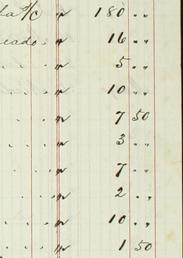 a/c " 180 ..
cado " 16 ..
" 5 ..
" 10 ..
" 7 50
" 3 ..
" 7 ..
" 2 ..
" 10 ..
" 1 50